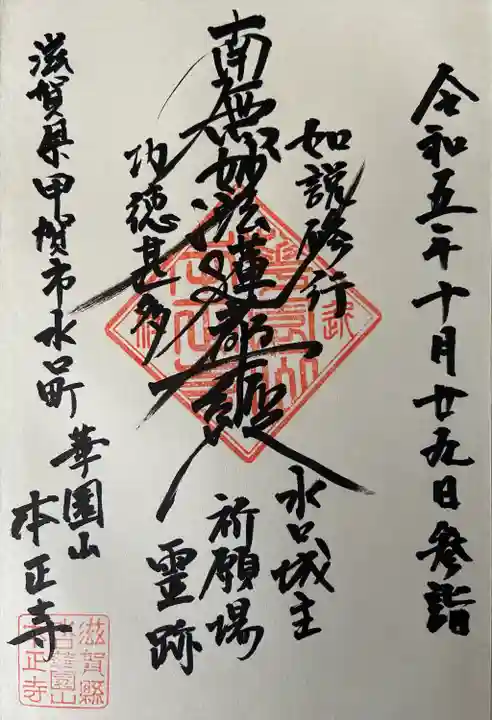 令和五年十月廿九日参詣
如説修行
水口城主
南無妙法蓮華経
祈願場
功徳甚多
霊跡
滋賀県甲賀市水口町
華園山
本正寺
滋賀縣
華園山
本正寺